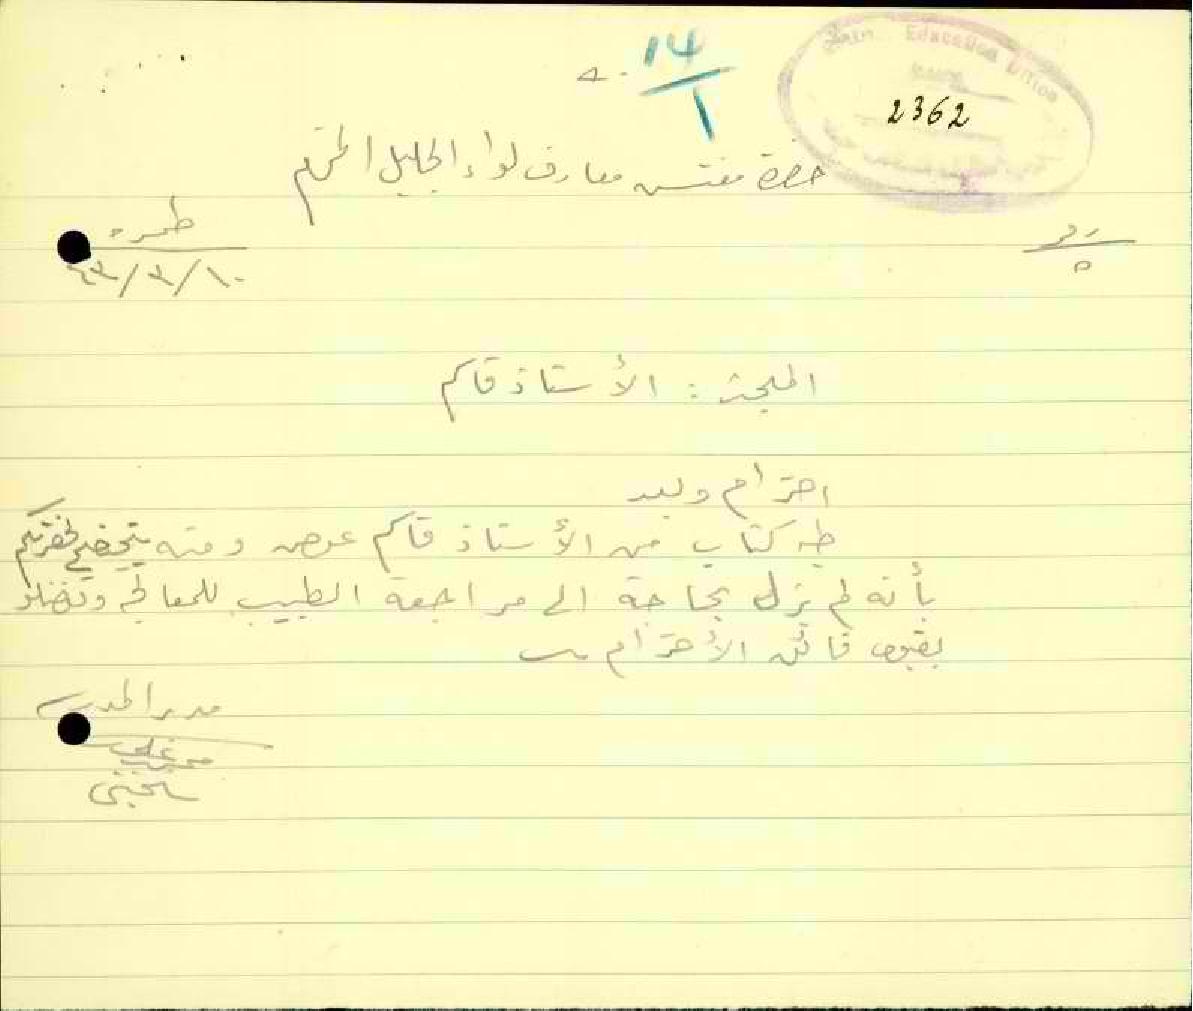 14
1
Education Office
2362
حضرة مفتش معارف لواء الجليل المحترم
طمره
٤٣/٣/١٠
المبحث : الأستاذ قاسم
احترام وبعد
طيه كتاب من الأستاذ قاسم عوض ومنه يتضح لحضرتكم
بأنه لم يزل بحاجة الى مراجعة الطبيب للمعالجة وتفضلوا
بقبول فائق الأحترام
مدير المدرسة
علي